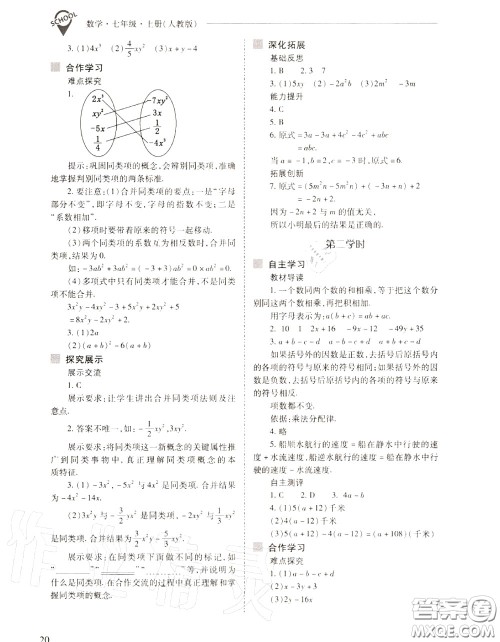 SCHOOL
数学·七年级·上册(人教版)
3. (1)4x³ (2)4/5xy² (3)x+y-4
合作学习
难点探究
1.
2x³
xy²
-5x
1/4
-7xy²
3x
1/2
-4x³
提示:巩固同类项的概念,会辨别同类项,准确
地掌握判别同类项的两条标准.
2. 要注意:(1)合并同类项的要点:一是“字母
部分不变”,即字母不变,字母的指数不变;二是
“系数相加”.
(2)移项时要带着原来的符号一起移动.
(3)两个同类项的系数互为相反数时,合并同类项,
结果为0.
如:-3ab²+3ab²=(-3+3)ab²=0×ab²=0.
(4)多项式中只有同类项才能合并,不是同类
项不能合并.
3x²y-4xy²-3+5x²y+2xy²+5
=8x²y-2xy²+2.
3. (1)2a
(2)(a+b)²-6(a+b)
探究展示
展示交流
1. C
展示要求:让学生讲出合并同类项法则及注
意点.
2. 答案不唯一,如:-1/2xy²,3xy².
展示要求:将同类项这一新概念的关键属性推
广到同类事物中,真正理解同类项概念的本
质特征.
是同类项.
展示要求:在同类项下面做不同的标记,如
等,并说明为
什么是同类项.在合作交流的过程中真正理解和
掌握同类项的概念.
20
深化拓展
基础反思
1. B 2. 3 7
3. (1)5xy (2)-2a²b (3)2m² -3m
能力提升
4. C
5. C
6. 原式=3a-3a+4c²-4c²+abc
=abc.
当a=-1,b=2,c=-3时,原式=6.
拓展创新
7. 原式=(5m²n-5m²n)+(-3n+n)+2
=-2n+2.
因为-2n+2与m的值无关,
所以小明最后的结果是正确的.
第二学时
自主学习
教材导读
1. 一个数同两个数的和相乘,等于把这个数分
别同这两个数相乘,再把积相加.
用字母表示为:a(b+c)=ab+ac.
2. 10 1 2x+16 -9x-12 -49y+35
3. a+b+c-d a-b-c+d
如果括号外的因数是正数,去括号后原括号内
的各项的符号与原来的符号相同.如果括号外的因
数是负数,去括号后原括号内的各项的符号与原来
的符号相反.
项数都不变.
依据:乘法分配律.
4. 略
5. 船顺水航行的速度=船在静水中行驶的速
度+水流速度.船逆水航行的速度=船在静水中行
驶的速度-水流速度.
自主测评
1. C 2. D 3. 4a-b
4. (1)5(a+12)(千米)
(2)4(a-12)(千米)
(3)5(a+12)-4(a-12)=(a+108)(千米)
合作学习
难点探究
1. (1)-3x+6y
(2)3x-10y